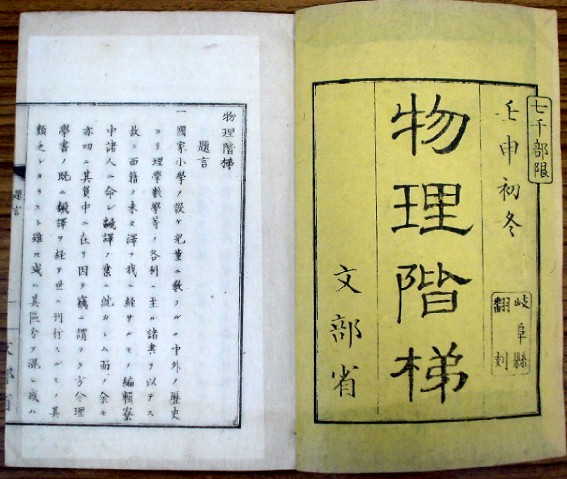 七千部限
壬申初冬
岐阜縣
翻刻
物理階梯
文部省
物理階梯
題言
一國家小學ノ設ケ兒童ニ教フルニ中外ノ歷史
ヨリ理學數學等ノ各科ニ至ル諸書ヲ以テス
故ニ西籍ノ未タ譯ヲ我ニ經サルモノ編輯寮
中諸人ニ命シ飜譯ノ業ニ從ハシム而乄余モ
亦叨ニ其員中ニ在リ因テ竊ニ謂フ方今理
學書ノ既ニ飜譯ヲ経テ世ニ刊行スルモノ其
類乏シカラスト雖𪜈或ハ其區分ヲ混シ或ハ
題言
文部省